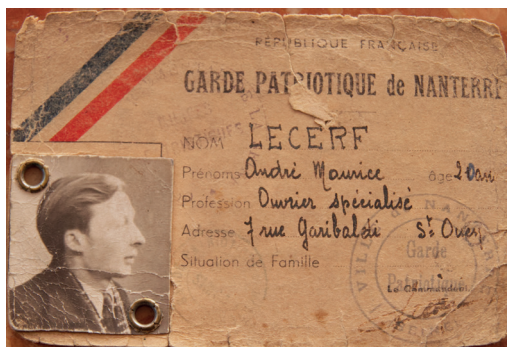 RÉPUBLIQUE FRANÇAISE
GARDE PATRIOTIQUE de NANTERRE
NOM LECERF
Prénoms André Maurice âge 20 ans
Profession Ouvrier spécialisé
Adresse 7 rue Garibaldi St Ouen
Situation de Famille
VILLE DE NANTERRE
Garde
Patriotique
Le Commandant